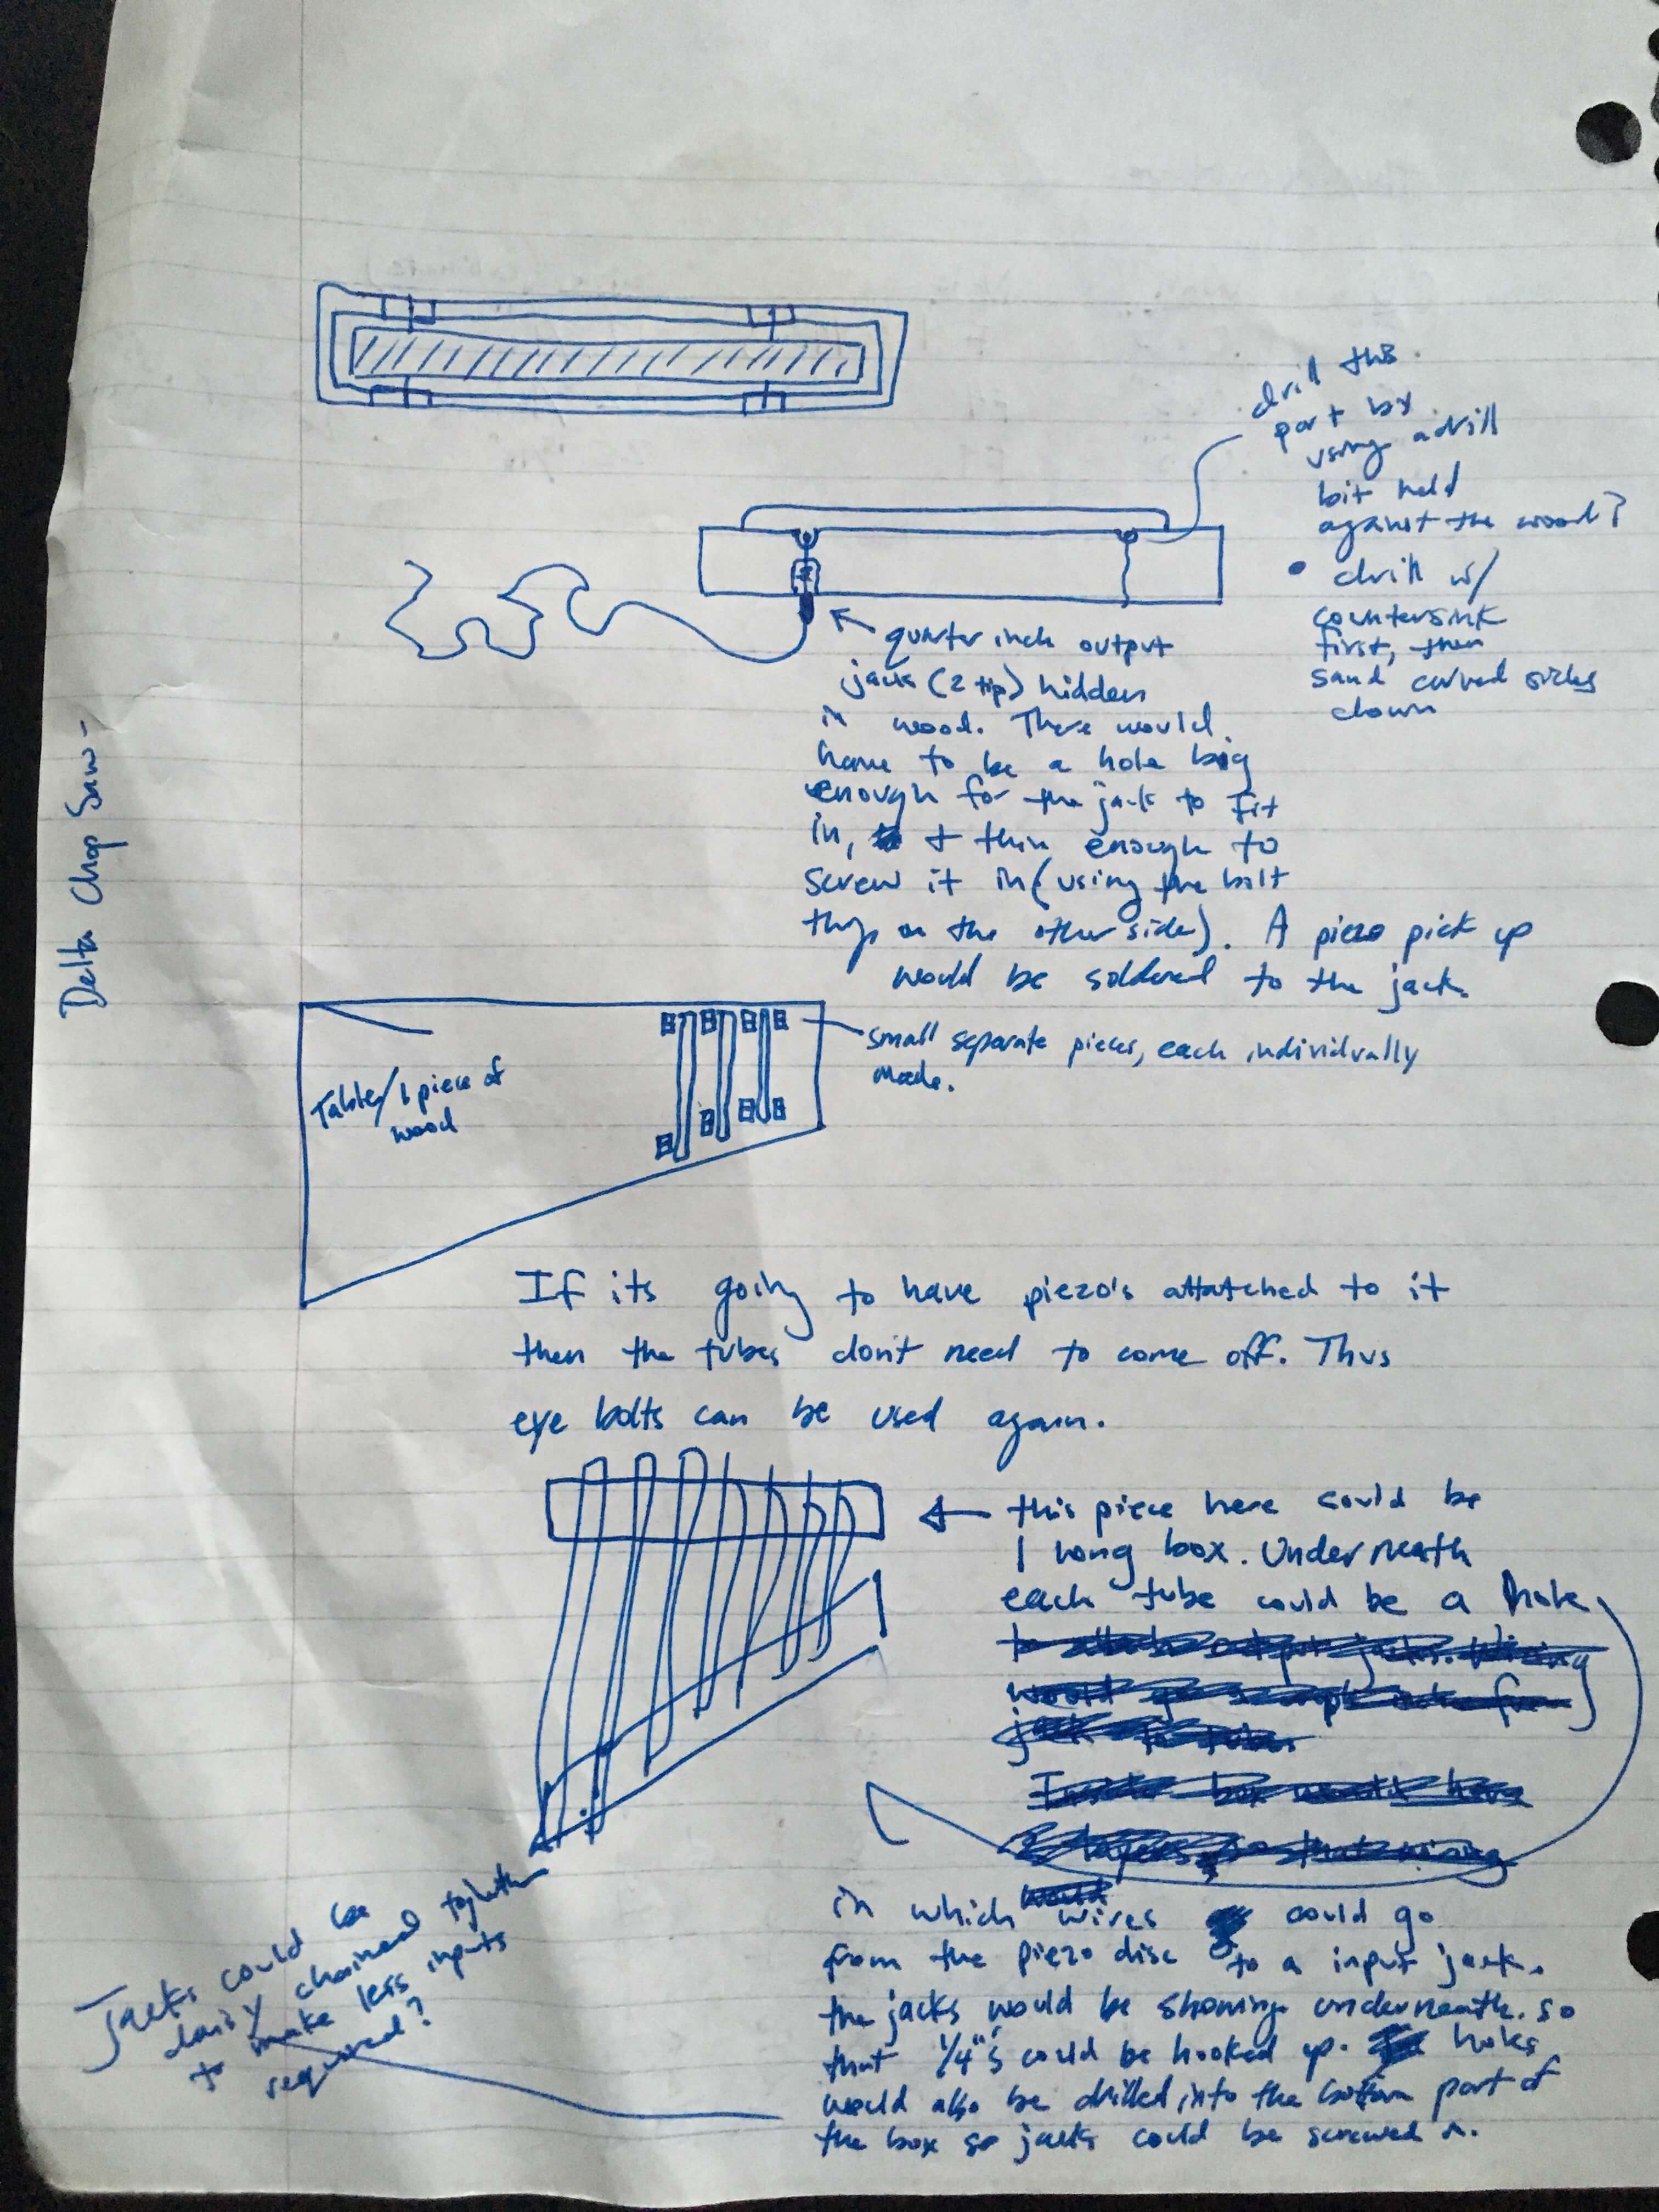 drill this
part by
using a drill
bit held
against the wood?
• drill w/
countersink
first, then
sand curved sides
down
quarter inch output
jack (2 tip) hidden
in wood. There would
have to be a hole big
enough for the jack to fit
in, + thin enough to
screw it in (using the bolt
on the other side). A piezo pick up
would be soldered to the jack.
Delta Chop Saw -
small separate pieces, each individually
made.
Table/1 piece of
wood
If its going to have piezo's attatched to it
then the tubes don't need to come off. Thus
eye bolts can be used again.
this piece here could be
1 long box. Underneath
each tube could be a hole
in which wires could go
from the piezo disc to a input jack.
the jacks would be showing underneath. so
that 1/4"s could be hooked up. holes
would also be drilled into the bottom part of
the box so jacks could be screwed in.
Jacks could be
daisy chained together
to make less inputs
required?